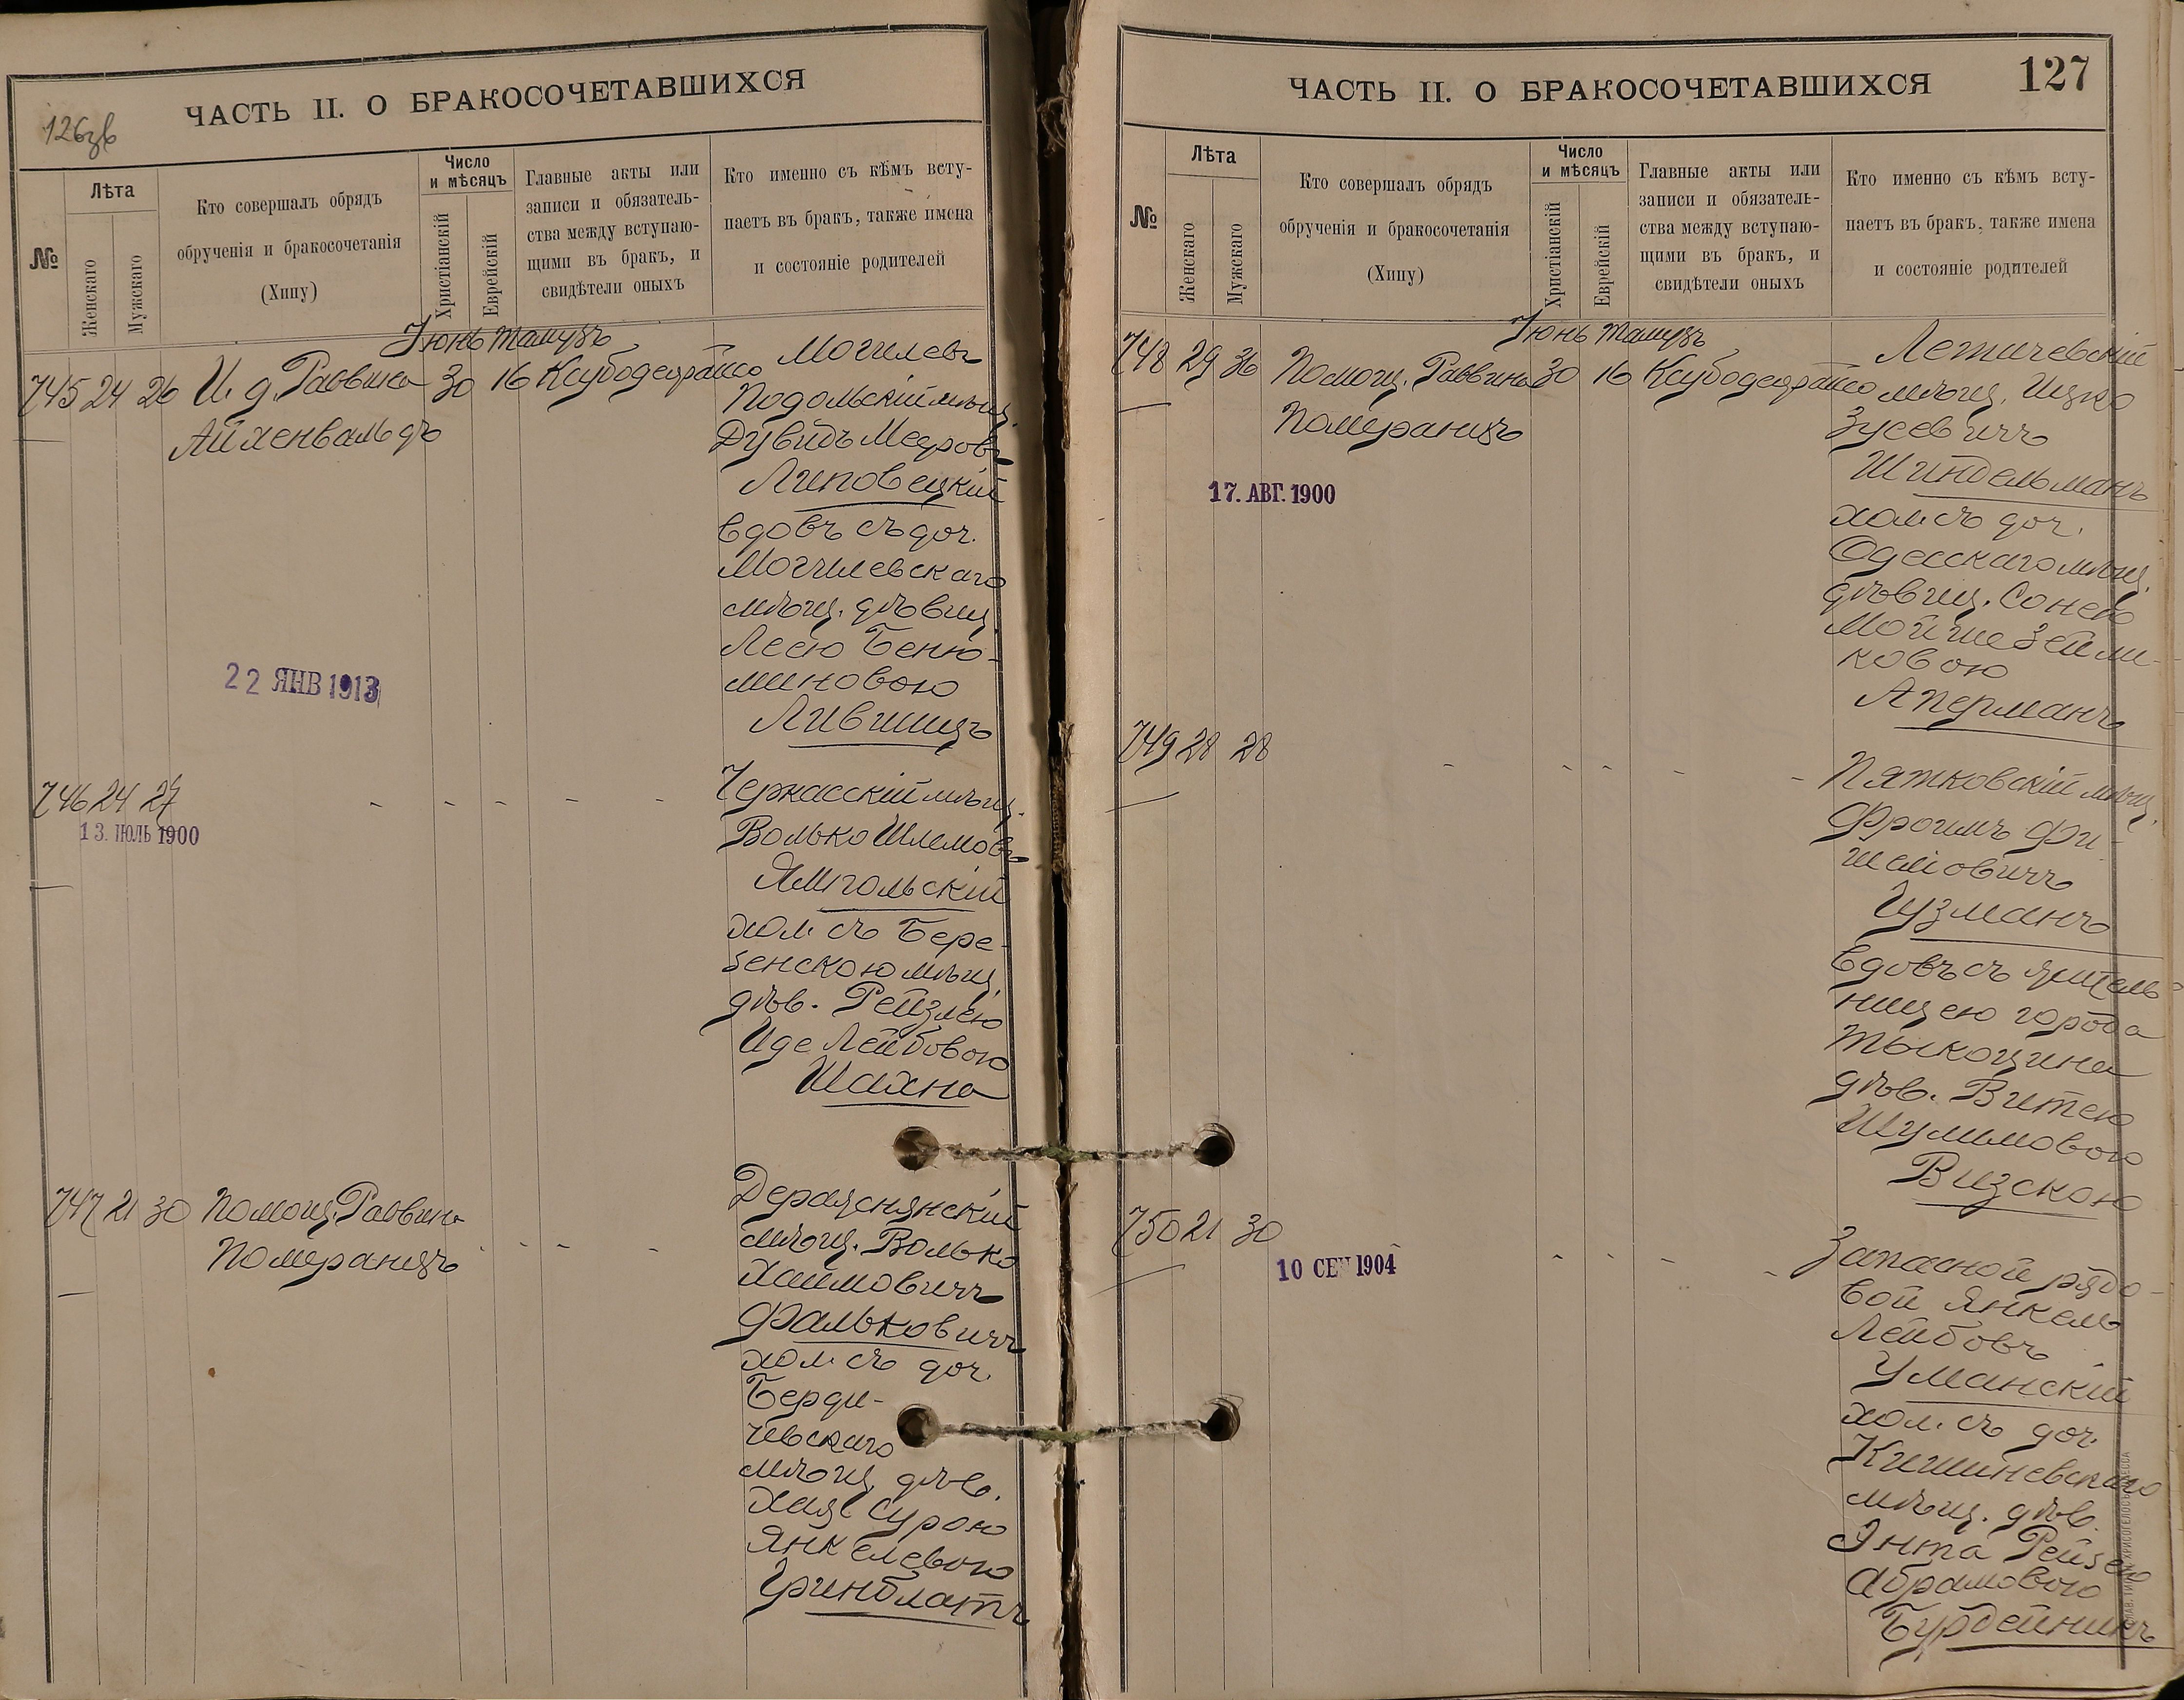 126зв
ЧАСТЬ II. О БРАКОСОЧЕТАВШИХСЯ
№
Лѣта
Женскаго
Мужскаго
Кто совершалъ обрядъ
обрученія и бракосочетанія
(Хипу)
Число
и мѣсяцъ
Христіанскій
Еврейскій
Главные акты или
записи и обязатель-
ства между вступаю-
щими въ бракъ, и
свидѣтели оныхъ
Кто именно съ кѣмъ всту-
паетъ въ бракъ, также имена
и состояніе родителей
Іюнь Тамузъ
745 24 26 И. д. Раввина 30 16
Айхенвальдъ
Могилевъ
Подольскій мѣщ.
Дувидъ Мееров
Липовецкій
вдовъ съ доч.
Могилевскаго
мѣщ. дѣвиц.
Леею Беню-
миновою
Лившицъ
22 ЯНВ 1913
746 24 27 - - - - -
13. ІЮЛЬ 1900
Черкасскій мѣщ.
Волько Шлемов
Ямпольскій
хол. съ Бере-
зенскою мѣщ.
дѣв. Рейзлею
Иде Лейбовою
Шахно
747 21 30 Помощ. Раввина
Померанцъ - - - -
Деражнянскій
мѣщ. Волько
Хаимовичъ
Фальковичъ
хол. съ доч.
Берди-
чевскаго
мѣщ. дѣв.
Хаяе Сурою
Янкелевою
Гринблатъ
127
ЧАСТЬ II. О БРАКОСОЧЕТАВШИХСЯ
№
Лѣта
Женскаго
Мужскаго
Кто совершалъ обрядъ
обрученія и бракосочетанія
(Хипу)
Число
и мѣсяцъ
Христіанскій
Еврейскій
Главные акты или
записи и обязатель-
ства между вступаю-
щими въ бракъ, и
свидѣтели оныхъ
Кто именно съ кѣмъ всту-
паетъ въ бракъ, также имена
и состояніе родителей
Іюнь Тамузъ
748 29 36 Помощ. Раввина 30 16
Померанцъ
17. АВГ. 1900
Летичевскій
мѣщ. Ицко
Зусевичъ
Шиндельманъ
хол. съ доч.
Одесскаго мѣщ.
дѣвиц. Сонею
Мойше Зейли-
ковою
Аперманъ
749 28 28 - - - - -
Пятковскій мѣщ.
Фроимъ Фи-
шелiовичъ
Гузманъ
вдовъ съ жатель
ницею города
Тыкоцина
дѣв. Витею
Шулимовою
Визскою
750 21 30 - - - -
10 СЕН 1904
Запасной рядо-
вой Янкель
Лейбовъ
Уманскій
хол. съ доч.
Кишиневскаго
мѣщ. дѣв.
Энта Рейзею
Абрамовою
Бурдейникъ